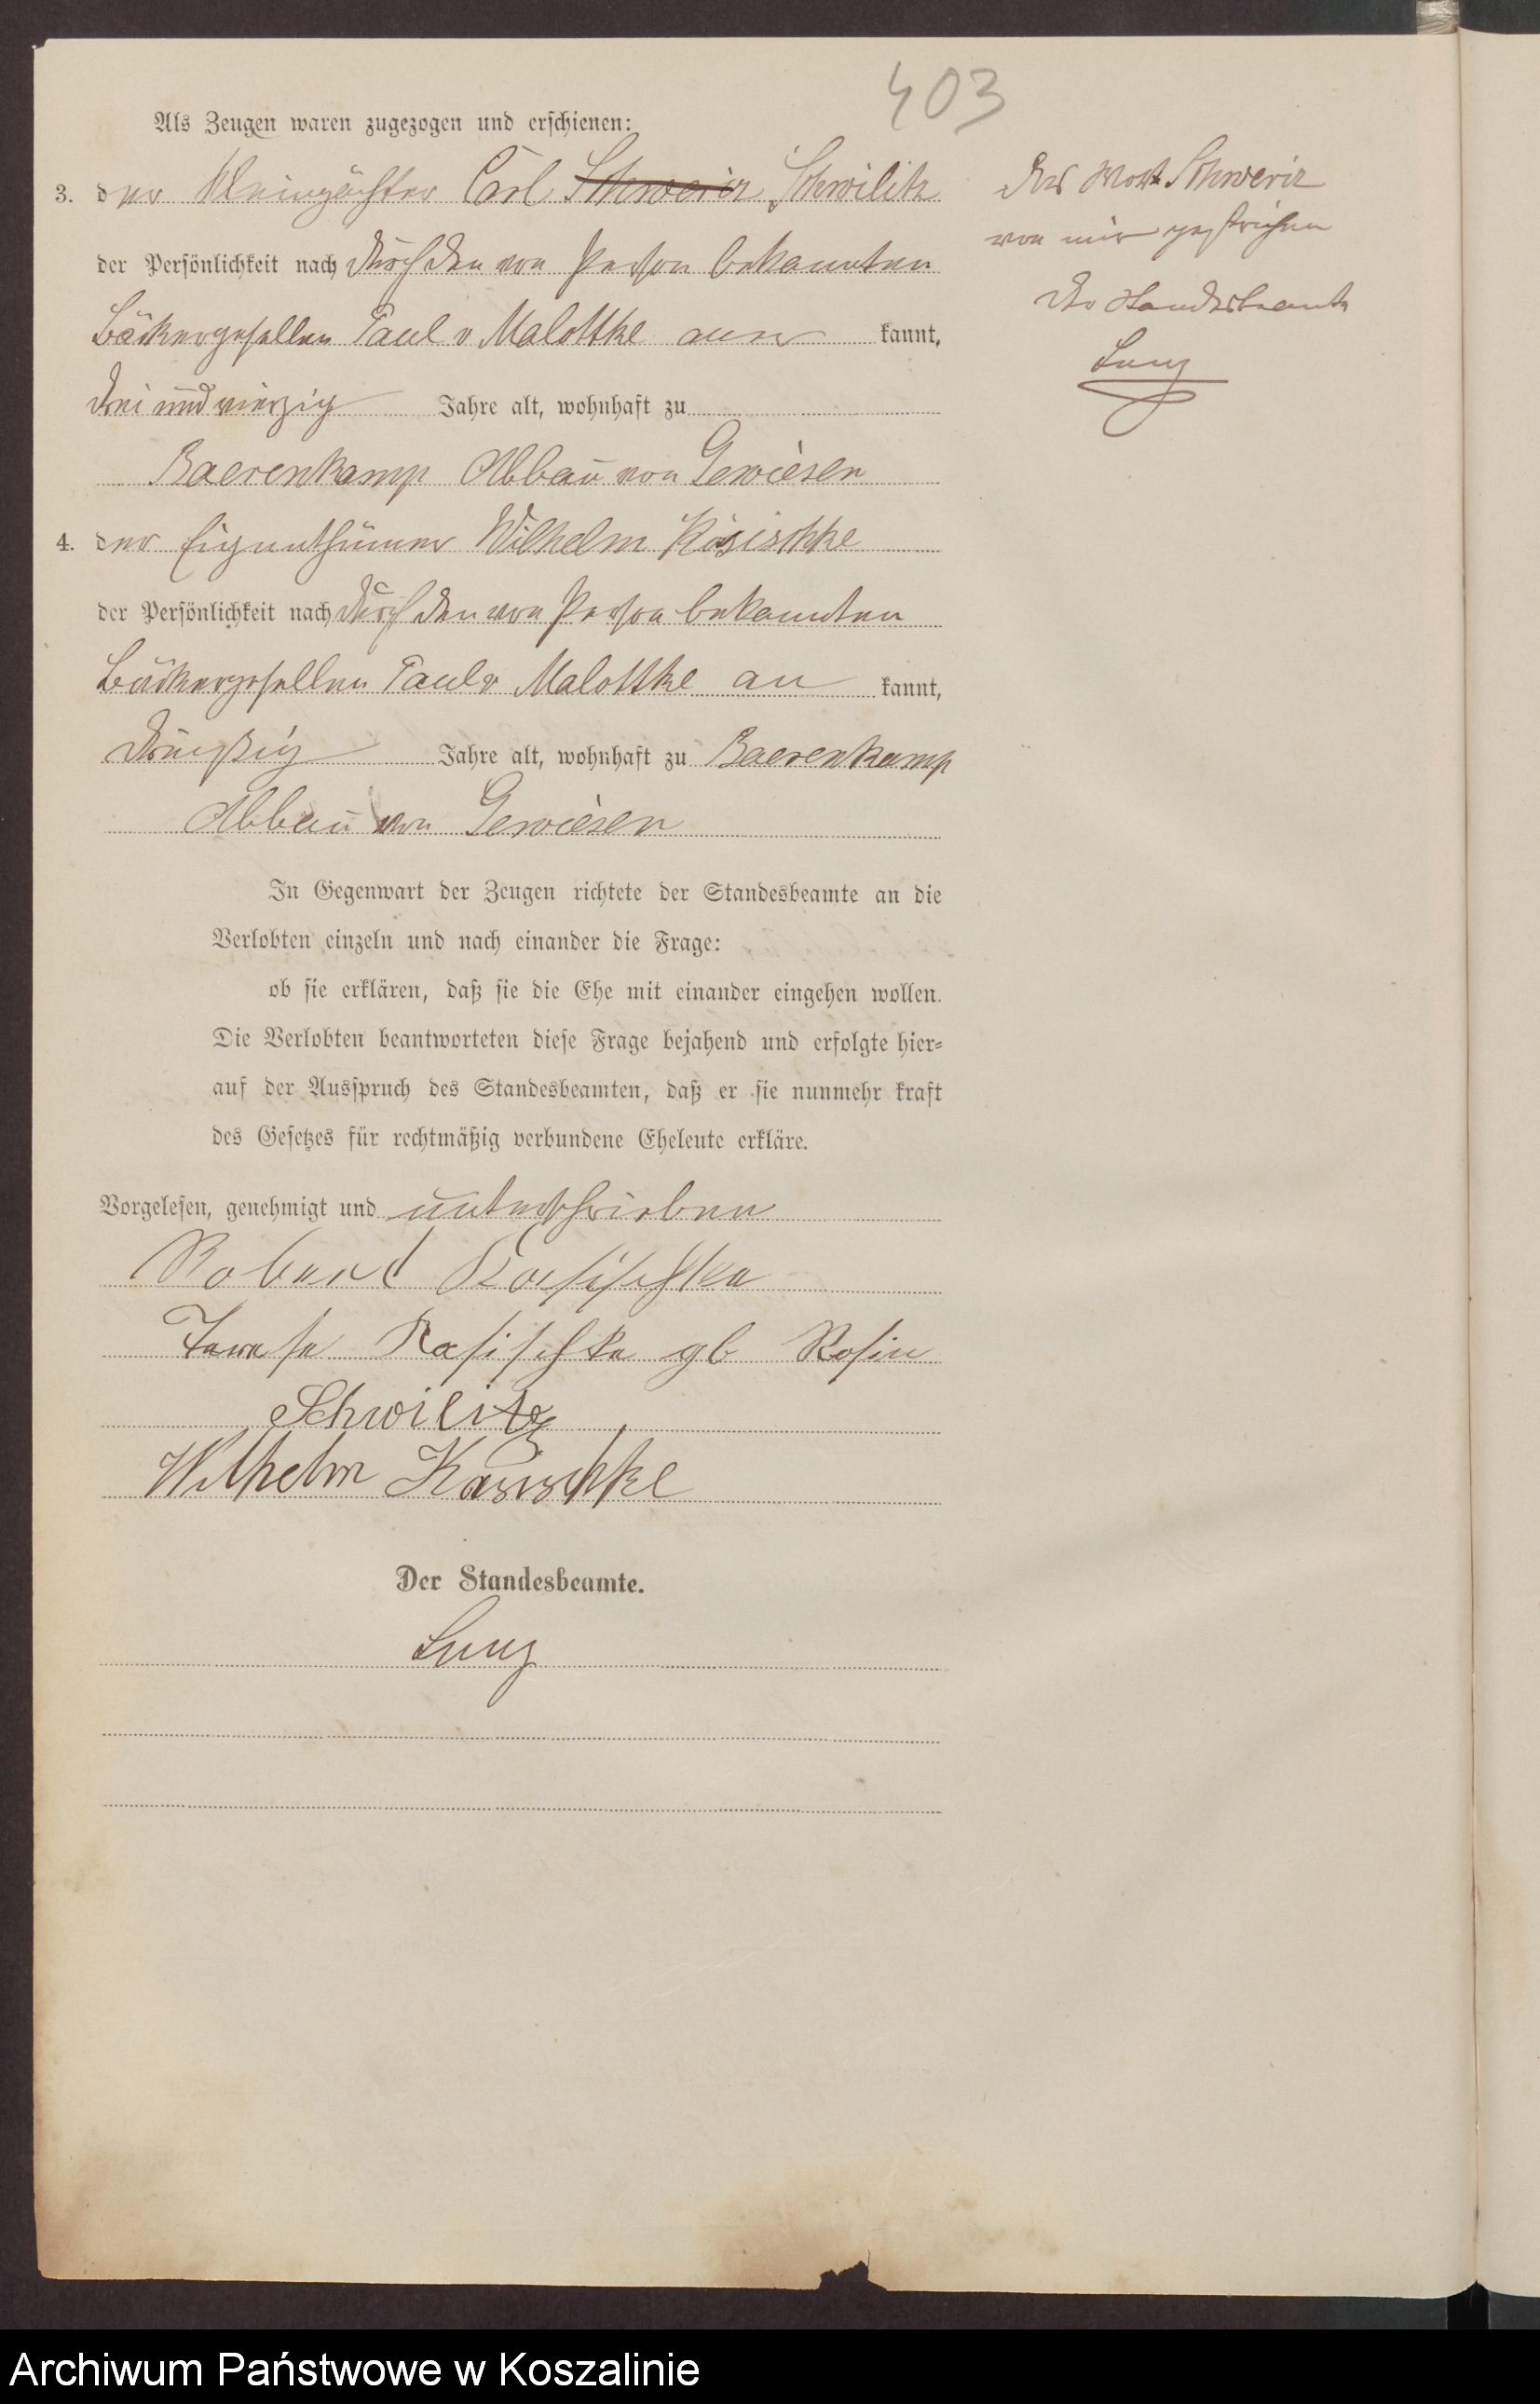 403
Als Zeugen waren zugezogen und erschienen:
3. der Kleinpächter Carl Schwerin Schwilitz
der Persönlichkeit nach durch den von Person bekannten
Bäckergesellen Paul v Malottke aner kannt,
drei und vierzig Jahre alt, wohnhaft zu
Baerenkamp Abbau von Gewiesen
4. der Eigenthümer Wilhelm Kasischke
der Persönlichkeit nach durch den von Person bekannten
Bäckergesellen Paul v Malottke an kannt,
dreißig Jahre alt, wohnhaft zu Baerenkamp
Abbau von Gewiesen
In Gegenwart der Zeugen richtete der Standesbeamte an die
Verlobten einzeln und nach einander die Frage:
ob sie erklären, daß sie die Ehe mit einander eingehen wollen.
Die Verlobten beantworteten diese Frage bejahend und erfolgte hier-
auf der Ausspruch des Standesbeamten, daß er sie nunmehr kraft
des Gesetzes für rechtmäßig verbundene Eheleute erkläre.
Vorgelesen, genehmigt und unterschrieben
Robert Kasischke
Kasischke gb Rosin
Schwilitz
Wilhelm Kasischke
Der Standesbeamte.
Das Wort Schwerin
von mir gestrichen
Der Standesbeamte
Archiwum Państwowe w Koszalinie